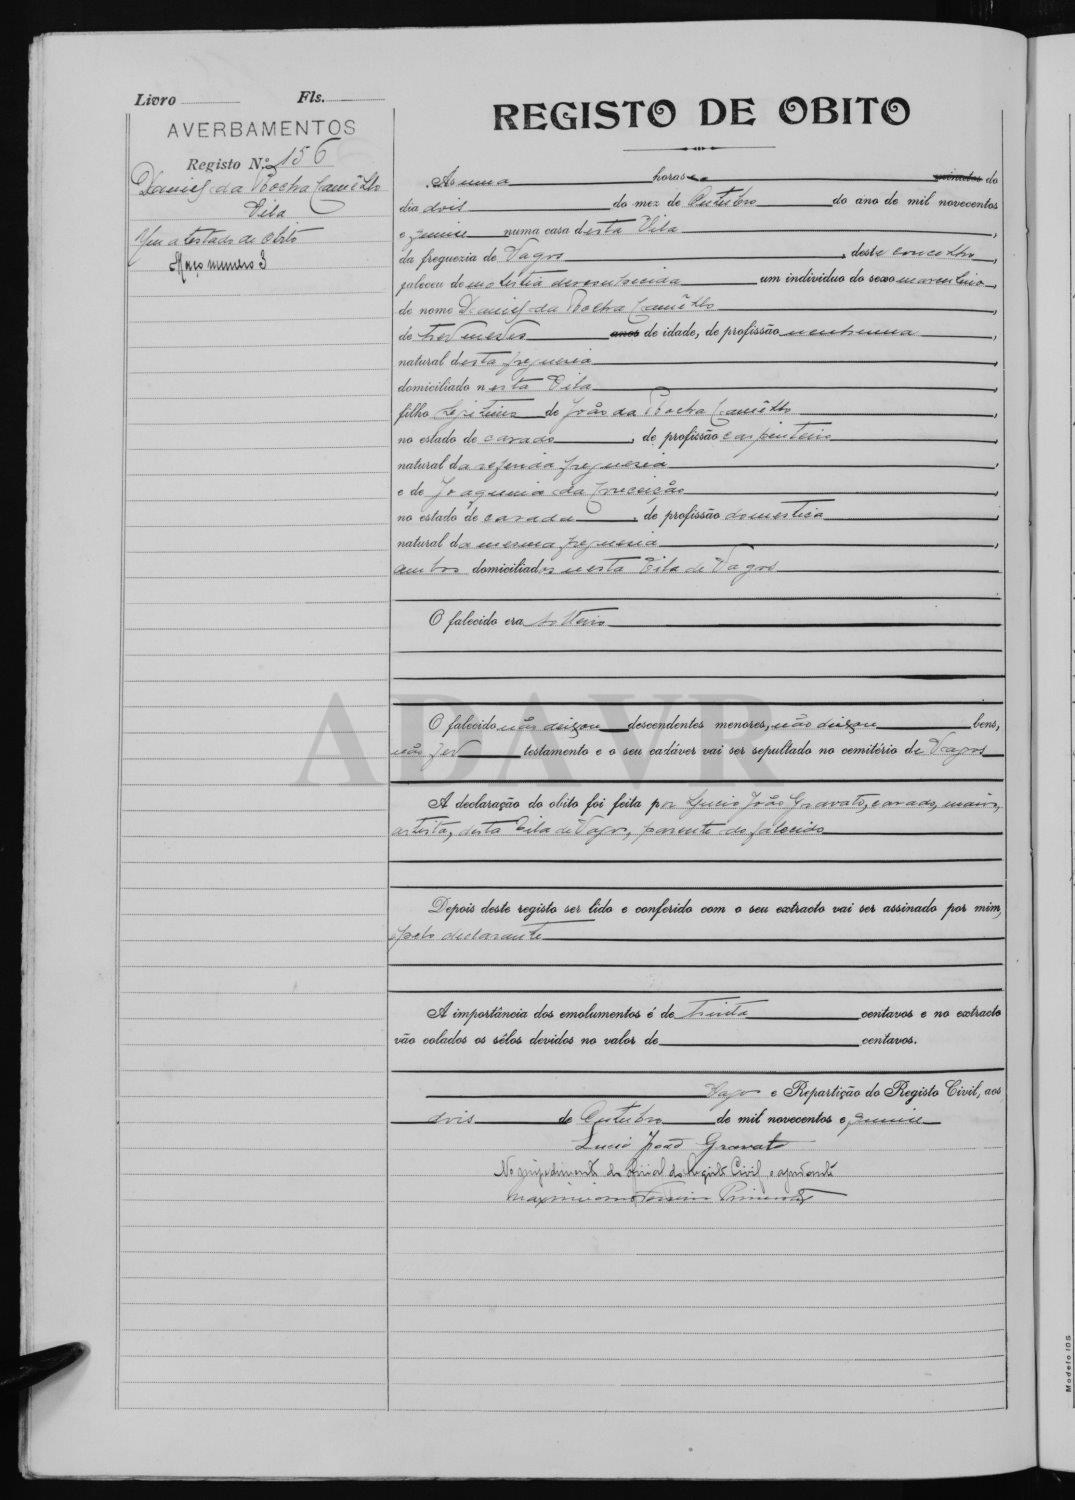 Livro Fls.
AVERBAMENTOS
Registo N.º 156
Daniel da Rocha Camêllo
Vila
Um atestado de obito
Maço numero 3
REGISTO DE OBITO
Ás uma horas e minutos do
dia dois do mez de Outubro do ano de mil novecentos
e quinse numa casa desta Vila
da freguezia de Vagos, deste concelho,
faleceu de molestia desconhecida um individuo do sexo masculino,
de nome Daniel da Rocha Camêllo,
de tres meses anos de idade, de profissão nenhuma,
natural desta freguesia,
domiciliado nesta Vila,
filho legitimo de João da Rocha Camêllo,
no estado de casado, de profissão carpinteiro,
natural da referida freguesia,
e de Joaquina da Conceição,
no estado de casada, de profissão domestica,
natural da mesma freguesia,
ambos domiciliados nesta Vila de Vagos
O falecido era solteiro
O falecido não deixou descendentes menores, não deixou bens,
não fez testamento e o seu cadáver vai ser sepultado no cemitério de Vagos
A declaração do obito foi feita por Lucio João Gravato, casado, maior,
artista, desta Vila de Vagos, parente do falecido
Depois deste registo ser lido e conferido com o seu extracto vai ser assinado por mim,
e pelo declarante
A importância dos emolumentos é de trinta centavos e no extracto
vão colados os sêlos devidos no valor de centavos.
Vagos e Repartição do Registo Civil, aos
dois de Outubro de mil novecentos e quinse
Lucio João Gravato
No impedimento do oficial do Registo Civil o ajudante
Maximiano Pimentel
ADAVR
Modelo 10S